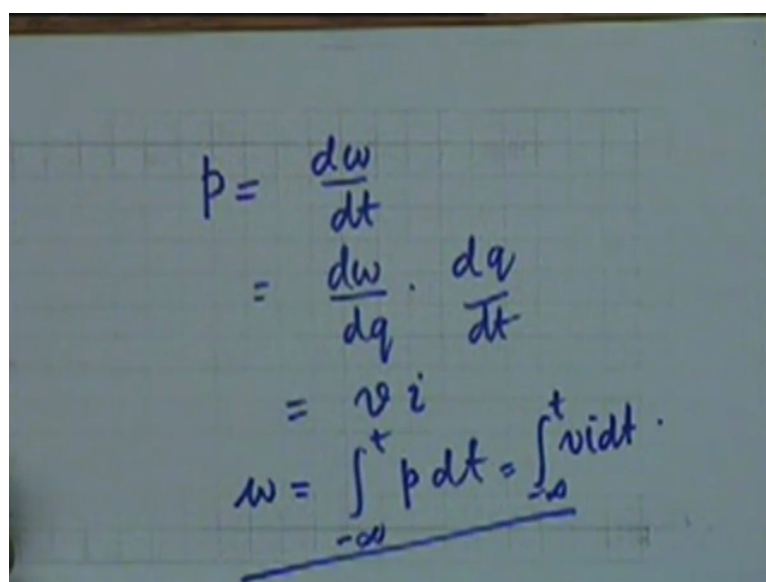 p = dw/dt
= dw/dq · dq/dt
= v i
w = ∫_{-∞}^{t} p dt = ∫_{-∞}^{t} v i dt.